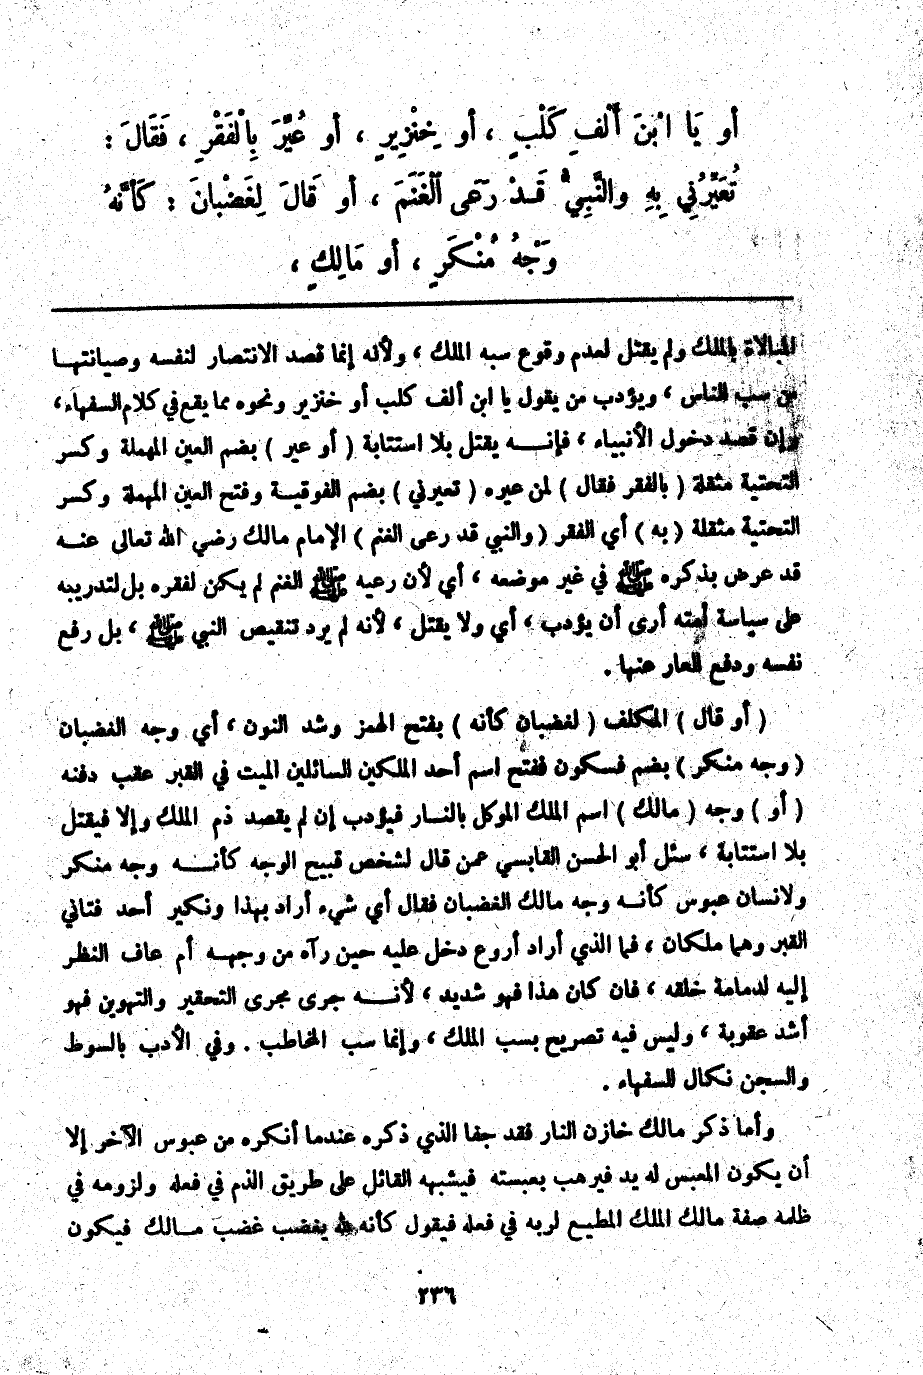 أو يَا ابْنَ أَلْفِ كَلْبٍ ، أو خِنْزِيرٍ ، أو عُيِّرَ بِالْفَقْرِ ، فَقَالَ :
تُعَيِّرُنِي بِهِ والنَّبِيُّ قَدْ رَعَى الْغَنَمَ ، أو قَالَ لِغَضْبانَ : كَأنَّهُ
وَجْهُ مُنْكَرٍ ، أو مَالِكٍ ،
المبالاة بالملك ولم يقتل لعدم وقوع سبه الملك ، ولأنه إنما قصد الانتصار لنفسه وصيانتهـا
من سب الناس ، ويؤدب من يقول يا ابن ألف كلب أو خنزير ونحوه مما يقع في كلام السفهاء،
وإن قصد دخول الأنبياء ، فإنــه يقتل بلا استتابة ( أو عير ) بضم العين المهملة وكسر
التحتية مثقلة ( بالفقر فقال ) لمن عيره ( تعيرني ) بضم الفوقيـة وفتح العين المهملة وكسر
التحتية مثقلة ( به ) أي الفقر ( والنبي قد رعى الغنم ) الإمام مالك رضي الله تعالى عنـه
قد عرض بذكره ﷺ في غير موضعه ، أي لأن رعيه ﷺ الغنم لم يكن لفقره بل لتدريبه
على سياسة أمته أرى أن يؤدب ، أي ولا يقتل ، لأنه لم يرد تنقيص النبي ﷺ ، بل رفع
نفسه ودفع العار عنها .
( أو قال ) المكلف ( لغضبان كأنه ) بفتح الهمز وشد النون ، أي وجه الغضبان
( وجه منكر ) بضم فسكون ففتح اسم أحد الملكين السائلين الميت في القبر عقب دفنه
( أو ) وجه ( مالك ) اسم الملك الموكل بالنـار فيؤدب إن لم يقصد ذم الملك وإلا فيقتل
بلا استتابة ، سئل أبو الحسن القابسي عمن قال لشخص قبيح الوجه كأنــه وجه منكر
ولانسان عبوس كأنـه وجه مالك الغضبان فقال أي شيء أراد بهذا ونكير أحد فتاني
القبر وهما ملكان ، فما الذي أراد أروع دخل عليه حين رآه من وجهـه أم عاف النظر
إليه لدمامة خلقه ، فان كان هذا فهو شديد ، لأنــه جرى مجرى التحقير والتهوين فهو
أشد عقوبة ، وليس فيه تصريح بسب الملك ، وإنما سب المخاطب . وفي الأدب بالسوط
والسجن نكال للسفهاء .
وأما ذكر مالك خازن النار فقد جفا الذي ذكره عندما أنكره من عبوس الآخر إلا
أن يكون المعبس له يد فيرهب بعبسته فيشبهه القائل على طريق الذم في فعله ولزومه في
ظلمه صفة مالك الملك المطيـع لربه في فعله فيقول كأنه لله يغضب غضب مـالك فيكون
٢٣٦